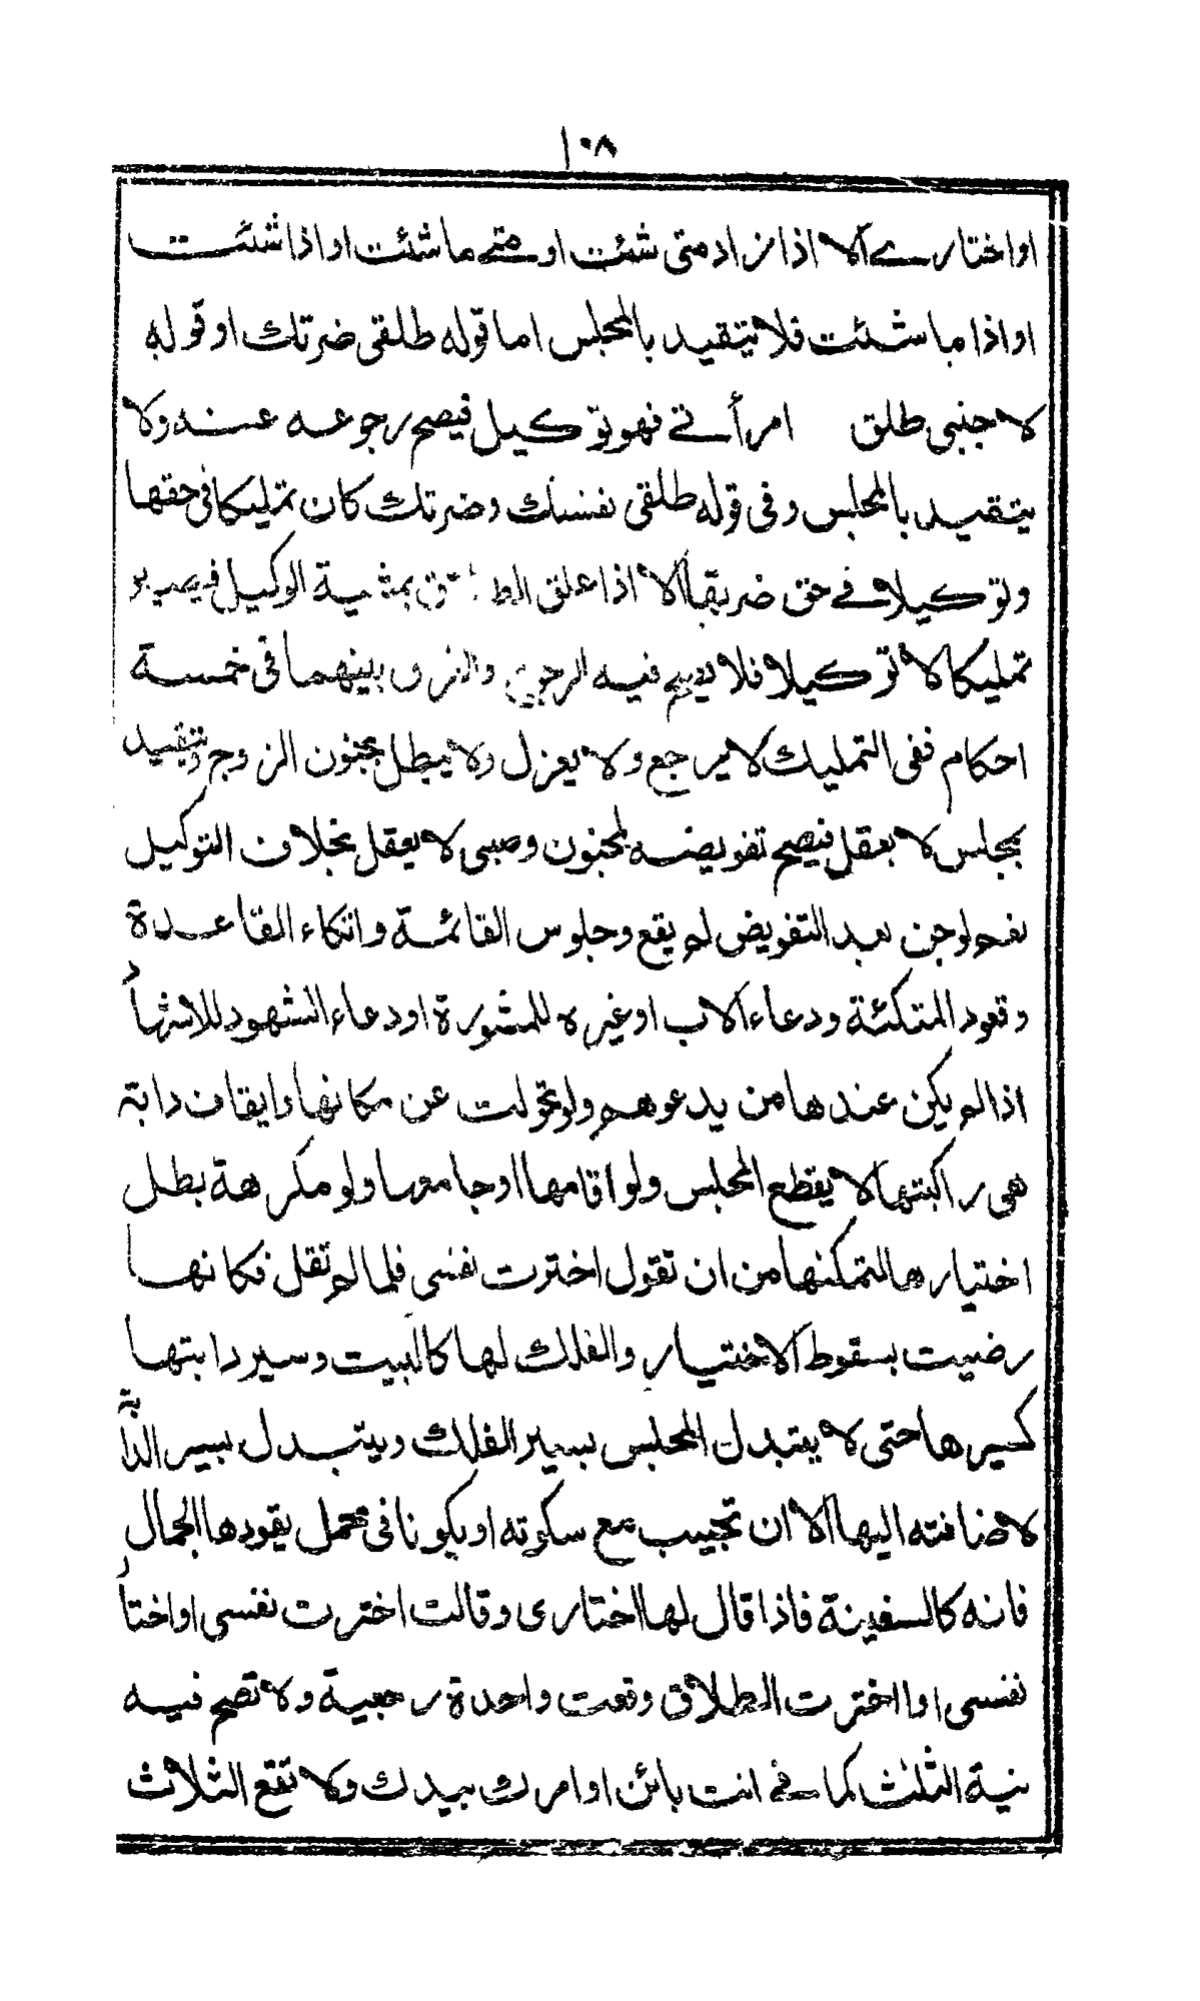 ١٠٨
او اختاري الا اذا زاد متى شئت او متى ما شئت او اذا شئت
او اذا ما شئت فلا يتقيد بالمجلس اما قوله طلقى ضرتك او قوله
لاجنبى طلق امرأتي فهو توكيل فيصح رجوعه عنه ولا
يتقيد بالمجلس وفى قوله طلقى نفسك وضرتك كان تمليكا فى حقها
وتوكيلا في حق ضرتها الا اذا علق الطلاق بمشية الوكيل فيصير
تمليكا لا توكيلا فلا يصح فيه الرجوع والفرق بينهما فى خمسة
احكام ففى التمليك لا يرجع ولا يعزل ولا يبطل بجنون الزوج ويتقيد
بمجلس لا بعقل فيصح تفويضه لمجنون وصبى لا يعقل بخلاف التوكيل
نعم لو جن بعد التفويض لم يقع وجلوس القائمة واتكاء القاعدة
وقعود المتكئة ودعاء الاب او غيره للمشورة او دعاء الشهود للاشهاد
اذا لم يكن عندها من يدعوهم ولو تحولت عن مكانها وايقاف دابة
هى راكبتها لا يقطع المجلس ولو اقامها او جامعها ولو مكرهة بطل
اختيارها لتمكنها من ان تقول اخترت نفسى فلما لم تقل فكانها
رضيت بسقوط الاختيار والفلك لها كالبيت وسير دابتها
كسيرها حتى لا يتبدل المجلس بسير الفلك ويتبدل بسير الدابة
لاضافته اليها الا ان تجيب مع سكوته او يكونا فى محمل يقودها الجمال
فانه كالسفينة فاذا قال لها اختارى وقالت اخترت نفسى او اختار
نفسى او اخترت الطلاق وقعت واحدة رجعية ولا تصح فيه
نية الثلث كما في انت بائن او امرك بيدك ولا تقع الثلاث